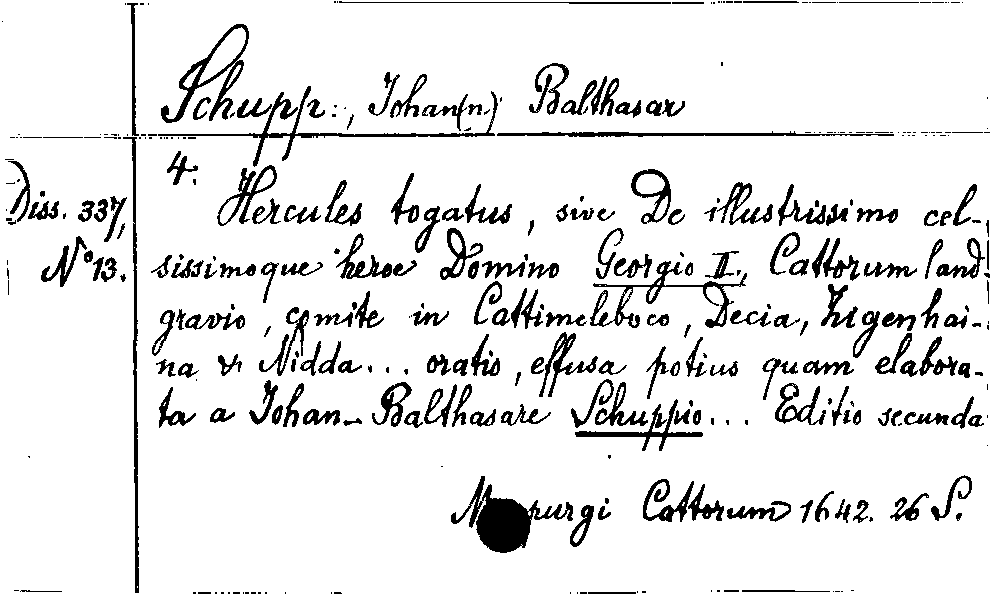 Schupp:, Johan(n) Balthasar
4.
Diss. 337,
N° 13.
Hercules togatus, sive De illustrissimo cel-
sissimoque heroe Domino Georgio II., Cattorum land-
gravio, comite in Cattimeleboco, Decia, Zigenhai-
na & Nidda... oratio, effusa potius quam elabora-
ta a Johan-Balthasare Schuppio... Editio secunda
Cattorum 1642. 26 S.